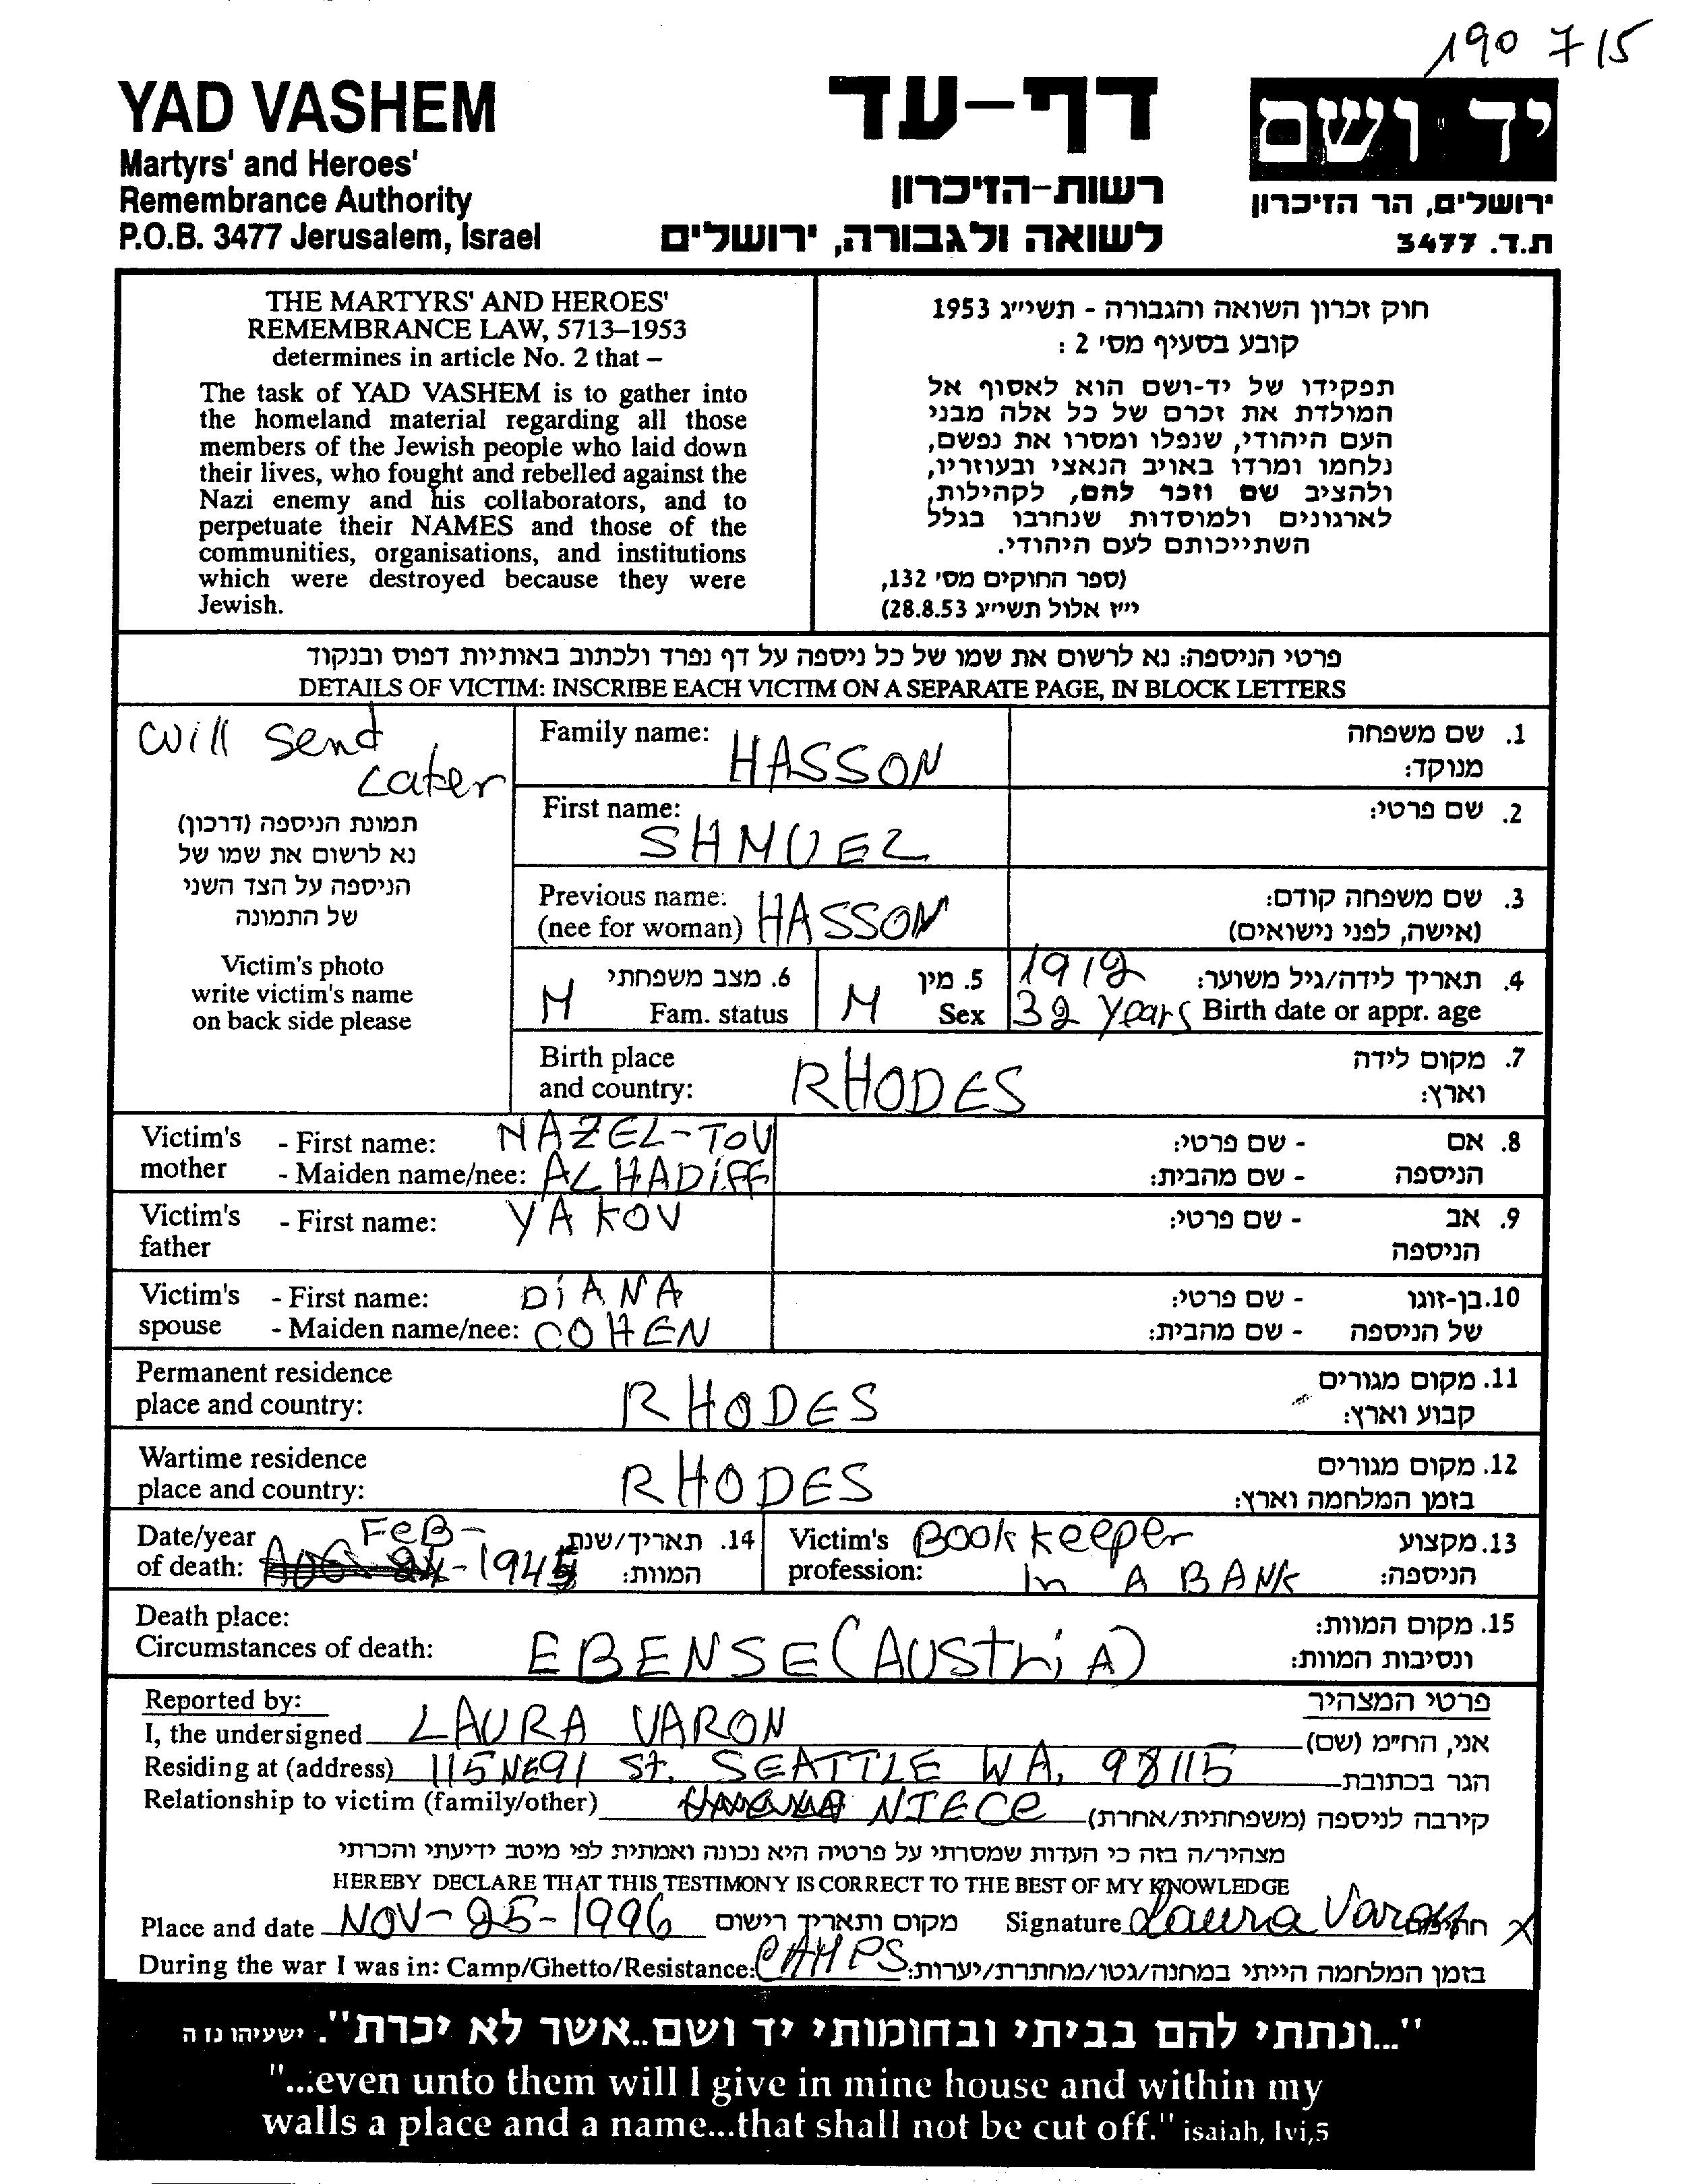 190 715
YAD VASHEM
Martyrs' and Heroes'
Remembrance Authority
P.O.B. 3477 Jerusalem, Israel
דף-עד
רשות-הזיכרון
לשואה ולגבורה, ירושלים
יד ושם
ירושלים, הר הזיכרון
ת.ד. 3477
THE MARTYRS' AND HEROES'
REMEMBRANCE LAW, 5713–1953
determines in article No. 2 that –
The task of YAD VASHEM is to gather into
the homeland material regarding all those
members of the Jewish people who laid down
their lives, who fought and rebelled against the
Nazi enemy and his collaborators, and to
perpetuate their NAMES and those of the
communities, organisations, and institutions
which were destroyed because they were
Jewish.
חוק זכרון השואה והגבורה - תשי״ג 1953
קובע בסעיף מס' 2 :
תפקידו של יד-ושם הוא לאסוף אל
המולדת את זכרם של כל אלה מבני
העם היהודי, שנפלו ומסרו את נפשם,
נלחמו ומרדו באויב הנאצי ובעוזריו,
ולהציב שם וזכר להם, לקהילות,
לארגונים ולמוסדות שנחרבו בגלל
השתייכותם לעם היהודי.
(ספר החוקים מס' 132,
י״ז אלול תשי״ג 28.8.53)
פרטי הניספה: נא לרשום את שמו של כל ניספה על דף נפרד ולכתוב באותיות דפוס ובנקוד
DETAILS OF VICTIM: INSCRIBE EACH VICTIM ON A SEPARATE PAGE, IN BLOCK LETTERS
will send
Later
תמונת הניספה (דרכון)
נא לרשום את שמו של
הניספה על הצד השני
של התמונה
Victim's photo
write victim's name
on back side please
Family name: HASSON
1. שם משפחה
מנוקד:
First name: SHMUEL
2. שם פרטי:
Previous name:
(nee for woman) HASSON
3. שם משפחה קודם:
(אישה, לפני נישואים)
6. מצב משפחתי
M Fam. status
5. מין
M Sex
1912 4. תאריך לידה/גיל משוער:
32 years Birth date or appr. age
Birth place
and country: RHODES
7. מקום לידה
וארץ:
Victim's - First name: MAZEL-TOV
mother - Maiden name/nee: ALHADIFF
8. אם - שם פרטי:
הניספה - שם מהבית:
Victim's - First name: YAKOV
father
9. אב - שם פרטי:
הניספה
Victim's - First name: DiANA
spouse - Maiden name/nee: COHEN
10. בן-זוגו - שם פרטי:
של הניספה - שם מהבית:
Permanent residence
place and country: RHODES
11. מקום מגורים
קבוע וארץ:
Wartime residence
place and country: RHODES
12. מקום מגורים
בזמן המלחמה וארץ:
Date/year FEB-
of death: 1945
14. תאריך/שנת
המוות:
Victim's Bookkeeper
profession: In A BANK
13. מקצוע
הניספה:
Death place:
Circumstances of death: EBENSE (AUSTriA)
15. מקום המוות:
ונסיבות המוות:
Reported by: פרטי המצהיר
I, the undersigned LAURA VARON אני, החי״מ (שם)
Residing at (address) 115 NE91 St. SEATTLE WA, 98115 הגר בכתובת
Relationship to victim (family/other) NIECE קירבה לניספה (משפחתית/אחרת)
מצהיר/ה בזה כי העדות שמסרתי על פרטיה היא נכונה ואמתית לפי מיטב ידיעתי והכרתי
HEREBY DECLARE THAT THIS TESTIMONY IS CORRECT TO THE BEST OF MY KNOWLEDGE
Place and date NOV-25-1996 מקום ותאריך רישום Signature Laura Varon X
During the war I was in: Camp/Ghetto/Resistance: CAMPS בזמן המלחמה הייתי במחנה/גטו/מחתרת/יערות:
"...ונתתי להם בביתי ובחומותי יד ושם..אשר לא יכרת". ישעיהו נו ה
"...even unto them will I give in mine house and within my
walls a place and a name...that shall not be cut off." isaiah, lvi,5